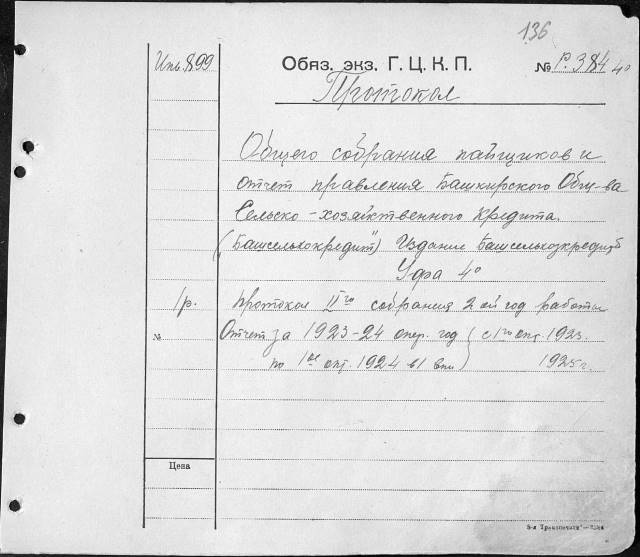 136
Инв. 899
Обяз. экз. Г. Ц. К. П.
№ Р. 384 4°
Протокол
Общего собрания пайщиков и
отчет правления Башкирского Общ-ва
Сельско-хозяйственного Кредита.
("Башсельхокредит") Издание Башсельхозкредит
Уфа 4°
1 р. Протокол II го собрания 2 ой год работы
№ Отчет за 1923-24 опер. год (с 1го окт. 1923.
по 1ое окт. 1924 в 1 вып) 1925 г.
Цена